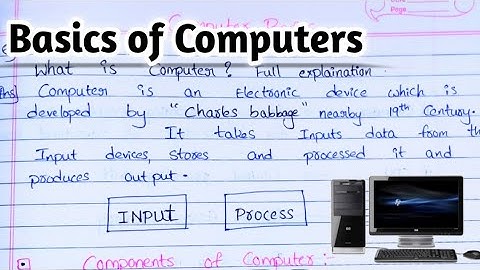 Page
Computer Basics
Basics of Computers
What is Computer? Full explaination.
Ans) Computer is an Electronic device which is
developed by "Charles babbage" nearby 19th Century.
It takes Inputs data from the
Input devices, stores and processed it and
produces output.
INPUT Process
Components of Computer :-
hp